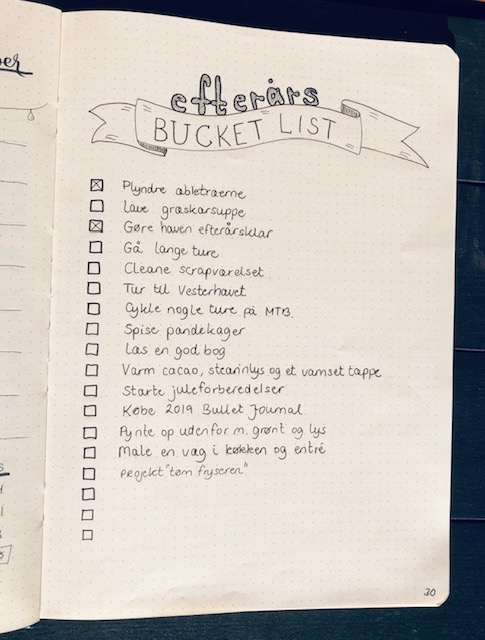 efterårs
BUCKET LIST
Plyndre æbletræerne
Lave græskarsuppe
Gøre haven efterårsklar
Gå lange ture
Cleane scrapværelset
Tur til Vesterhavet
Cykle nogle ture på MTB.
Spise pandekager
Læs en god bog
Varm cacao, stearinlys og et vamset tæppe
Starte juleforberedelser
Købe 2019 Bullet Journal
Pynte op udenfor m. grønt og lys
Male en væg i køkken og entré
Projekt "tøm fryseren"
30